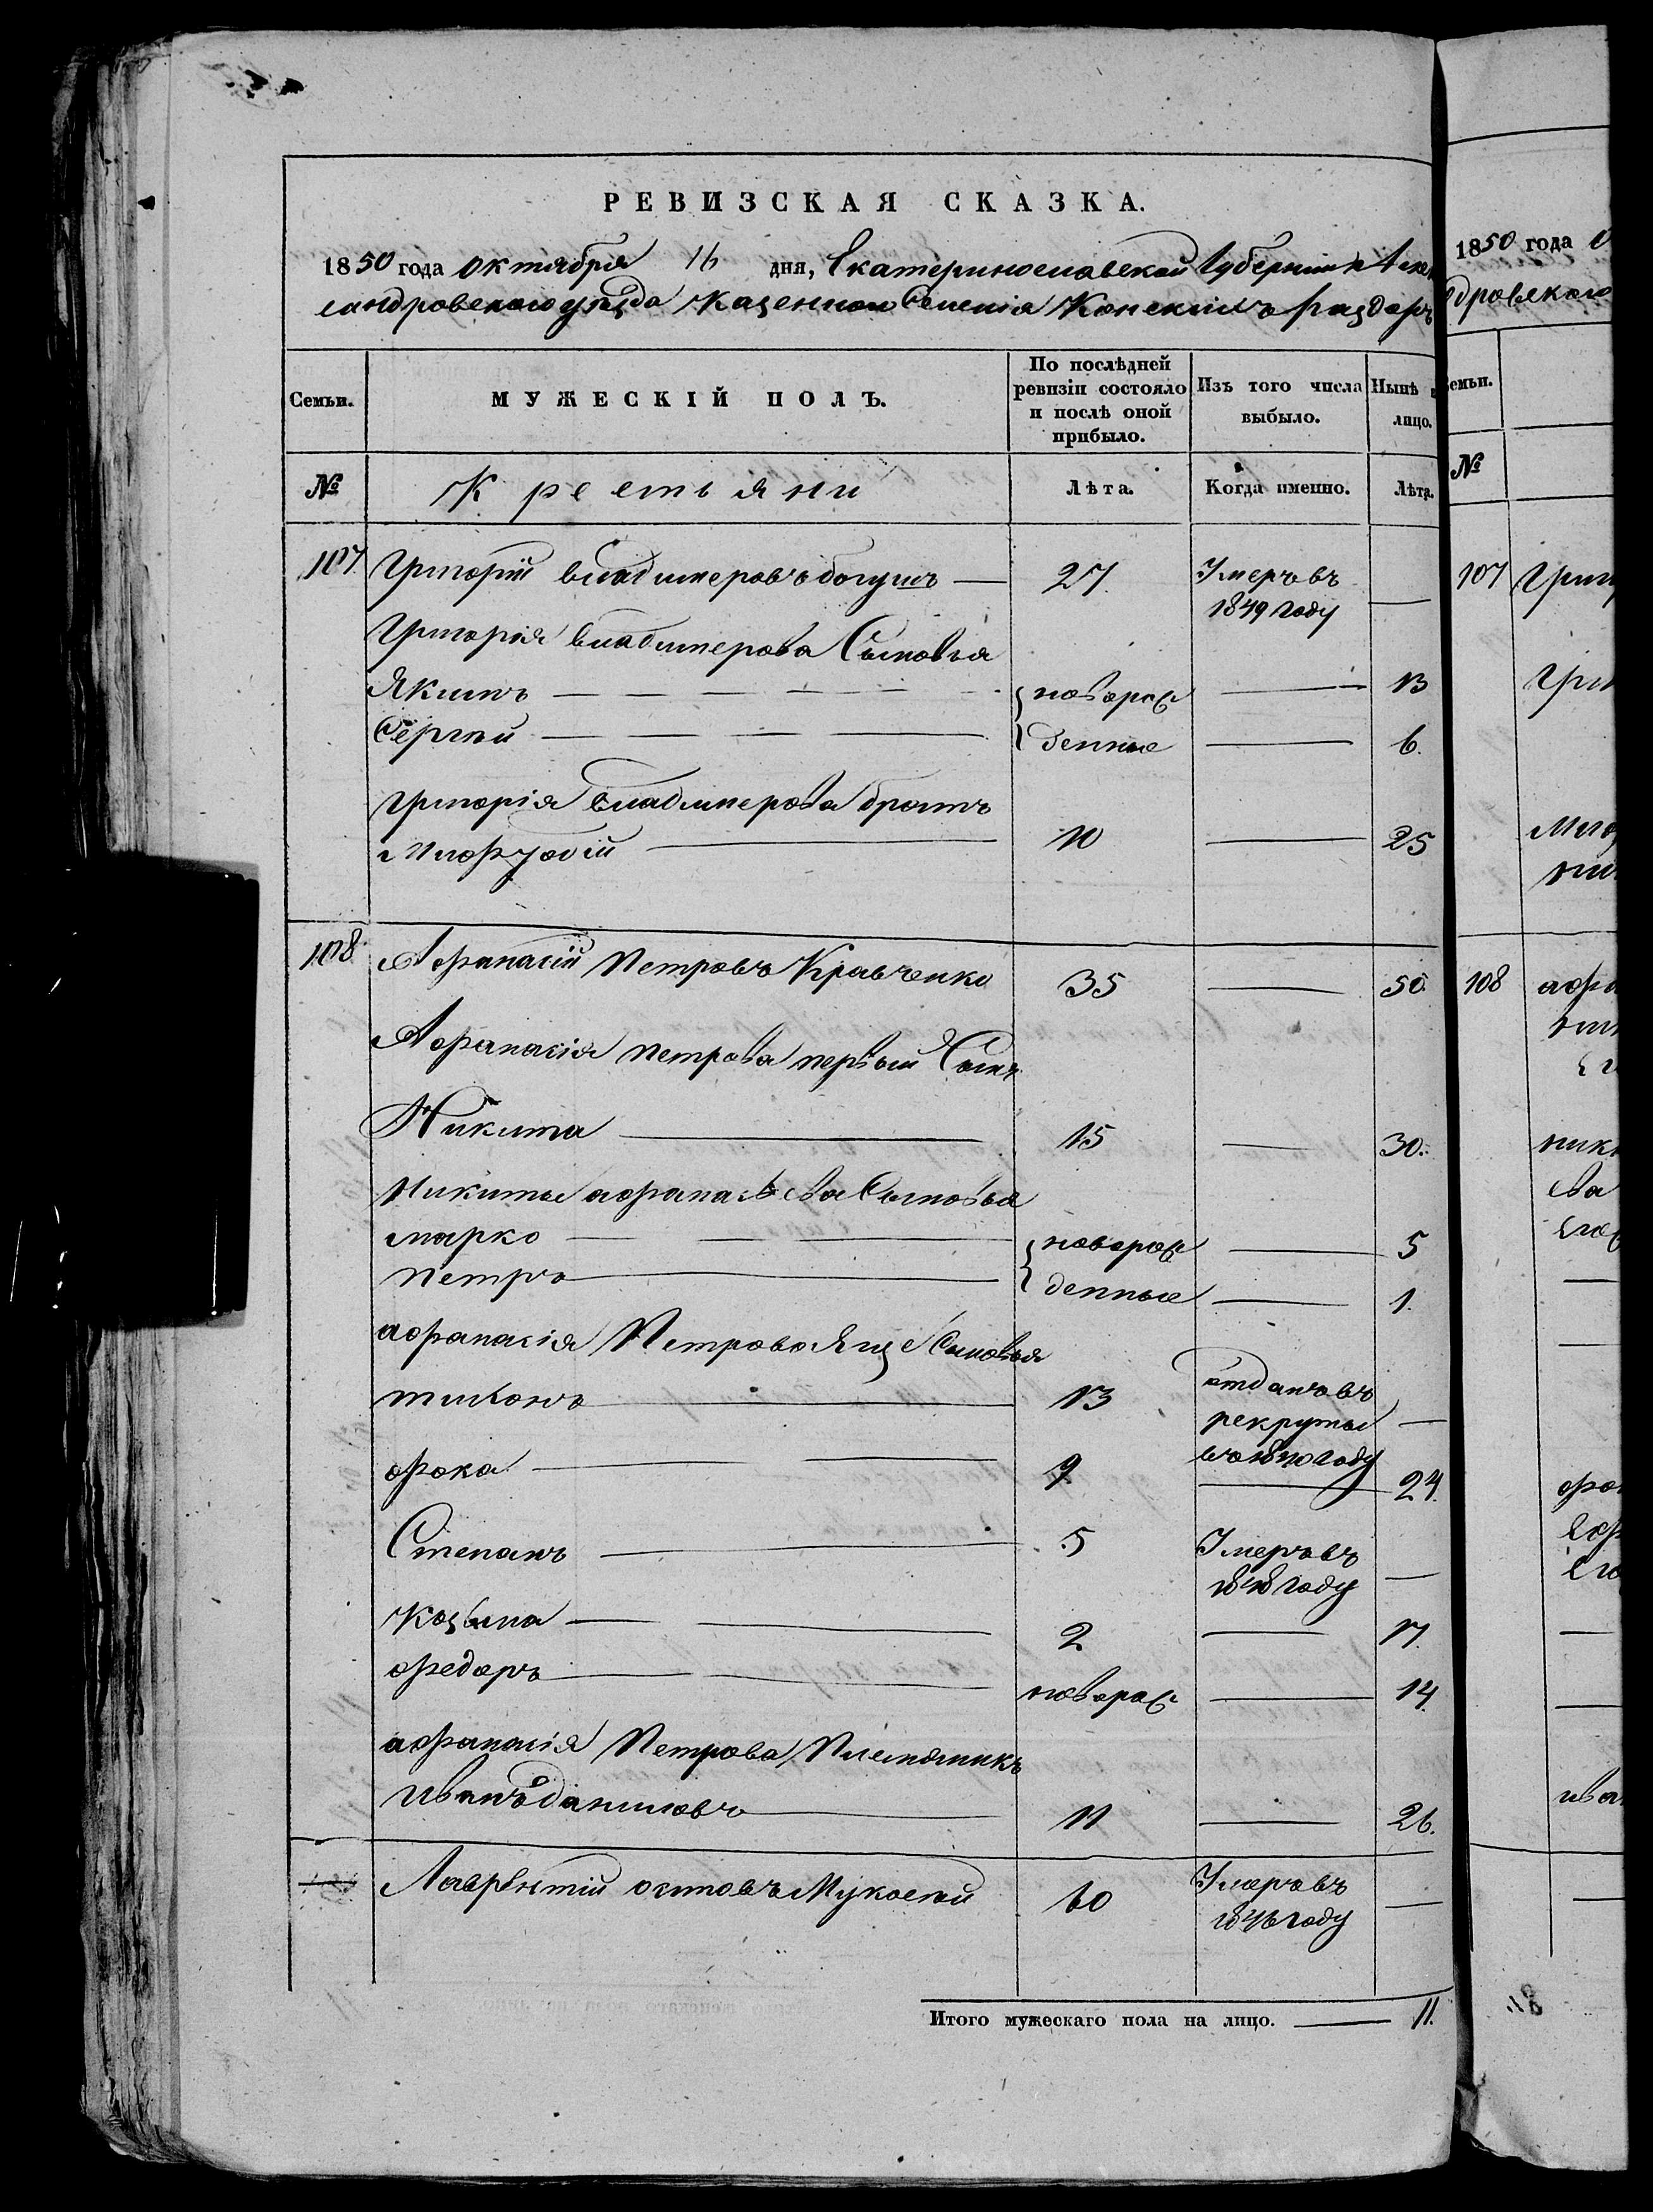 РЕВИЗСКАЯ СКАЗКА.
1850 года октября 16 дня, Екатеринославской Губернии Алек
сандровского уѣзда казенного селенія Конскихъ раздоръ
Семьи. МУЖЕСКІЙ ПОЛЪ. По послѣдней ревизіи состояло и послѣ оной прибыло. Изъ того числа выбыло. Нынѣ лицо.
№ Крестьяни Лѣта. Когда именно. Лѣта.
107. Григорій владимеровъ богушъ — 27. Умеръ въ
1849 году —
Григорія владимерова Сыновья
Якимъ — новорож — 13
Сергѣй — денные — 6.
григорія владимерова братъ
10 — 25
108. Афанасій Петровъ Кравченко 35 — 50.
Афанасія петрова первый Сынъ
Никита — 15 — 30.
Никиты афанасьева Сыновья
марко — новорож — 5
петръ — денные — 1.
афанасія Петрова Еще Сыновья
тихонъ — 13 отданъ въ
рекруты —
въ 1840 году
фока — 9. — 24.
Степанъ — 5 Умеръ въ
1848 году —
Козьма — 2 — 17.
федоръ — новорож — 14.
афанасія Петрова Племянникъ
Иванъ даниловъ — 11 — 26.
Лаврентій осиповъ Мукосѣй 60 Умеръ въ
1846 году —
Итого мужескаго пола на лицо. — 11.
1850 года О
дровского
Семьи.
№
107 Григ
Гри
108 афа
ники
ева
ива